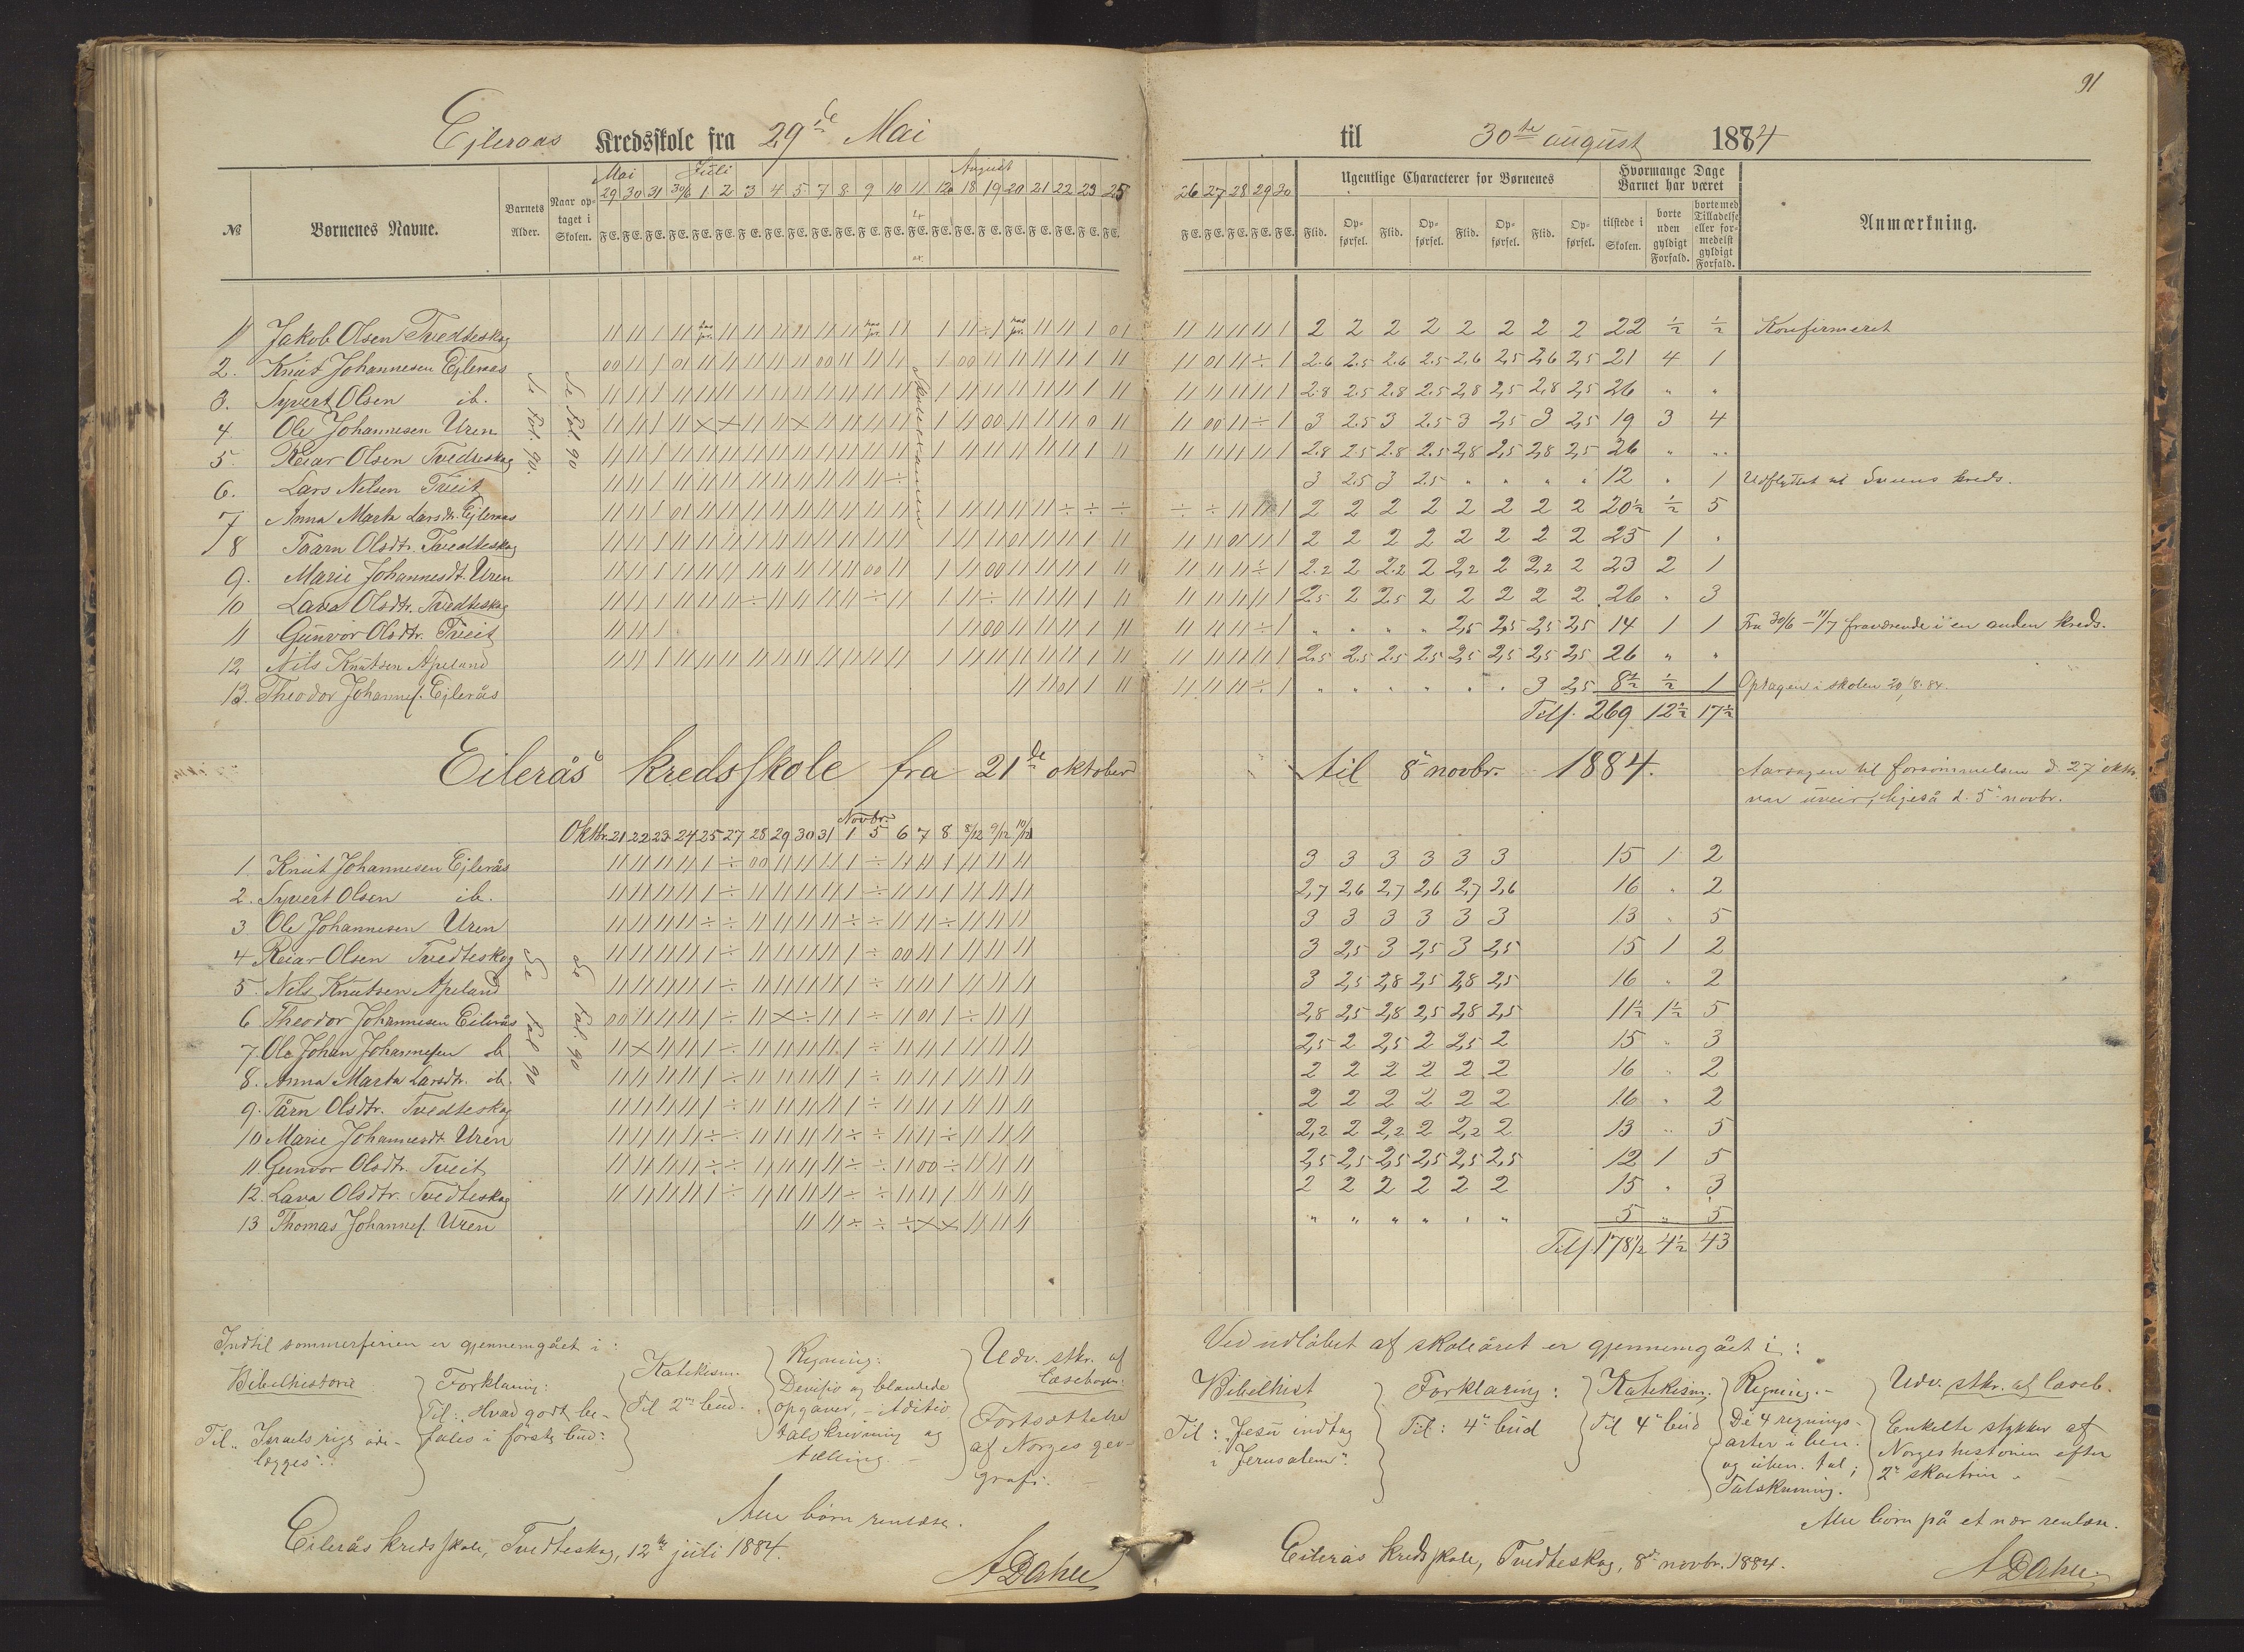 91
Ejleraas Kredsskole fra 29de Mai til 30te august 1884
№ Børnenes Navne. Barnets Alder. Naar optaget i Skolen. Mai 29 30 31 30/6 Juli 1 2 3 4 5 7 8 9 10 11 12 August 18 19 20 21 22 23 25 26 27 28 29 30
Ugentlige Characterer for Børnenes Flid. Opførsel. Flid. Opførsel. Flid. Opførsel. Flid. Opførsel.
Hvormange Dage Barnet har været tilstede i Skolen. borte uden gyldigt Forfald. borte med Tilladelse eller formedelst gyldigt Forfald.
Anmærkning.
1 Jakob Olsen Tvedteskog 2 2 2 2 2 2 2 2 22 ½ ½ Konfirmeret
2. Knut Johannesen Ejleraas 2.6 2.5 2.6 2.5 2,6 2,5 2,6 2,5 21 4 1
3. Syvert Olsen ib. 2.8 2.5 2.8 2.5 2,8 2,5 2,8 2,5 26 " "
4. Ole Johannesen Uren 3 2.5 3 2.5 3 2,5 3 2,5 19 3 4
5. Reiar Olsen Tvedteskog 2.8 2.5 2.8 2.5 2,8 2,5 2,8 2,5 26 " "
6. Lars Nilsen Tveit 3 2.5 3 2.5 " " " " 12 " 1 Udflyttet til kreds.
7 Anna Marta Larsdt. Ejleraas 2 2 2 2 2 2 2 2 20½ ½ 5
8 Taarn Olsdtr. Tvedteskog 2 2 2 2 2 2 2 2 25 1 "
9. Marie Johannesdt. Uren 2.2 2 2.2 2 2,2 2 2,2 2 23 2 1
10 Lava Olsdtr. Tvedteskog 2.5 2 2.5 2 2 2 2 2 26 " 3
11 Gunvor Olsdtr. Tveit " " " " 2,5 2,5 2,5 2,5 14 1 1 Fra 30/6 – 11/7 fraværende i en anden kreds.
12 Nils Knutsen Apeland 2.5 2.5 2.5 2.5 2,5 2,5 2,5 2,5 26 " "
13. Theodor Johannes. Ejlerås " " " " " " 3 2,5 8½ ½ 1 Optagen i skolen 20/8. 84.
Tils. 269 12½ 17½
Se Pag. 90. Se Pag. 90
Eilerås kredsskole fra 21de oktober til 8de novbr. 1884.
Aarsagen til forsømmelsen d. 27 oktbr.
var uveir, ligeså d. 5te novbr.
Oktbr. 21 22 23 24 25 27 28 29 30 31 Novbr. 1 5 6 7 8 8/12 9/12 10/12
1 Knut Johannesen Ejlerås 3 3 3 3 3 3 15 1 2
2. Syvert Olsen ib. 2,7 2,6 2,7 2,6 2,7 2,6 16 " 2
3 Ole Johannesen Uren 3 3 3 3 3 3 13 " 5
4 Reiar Olsen Tvedteskog 3 2,5 3 2,5 3 2,5 15 1 2
5. Nils Knutsen Apeland 3 2,5 2,8 2,5 2,8 2,5 16 " 2
6 Theodor Johannesen Eilerås 2,8 2,5 2,8 2,5 2,8 2,5 11½ 1½ 5
7. Ole Johan Johannesen ib 2,5 2 2,5 2 2,5 2 15 " 3
8. Anna Marta Larsdtr. ib. 2 2 2 2 2 2 16 " 2
9. Tårn Olsdtr. Tvedteskog 2 2 2 2 2 2 16 " 2
10 Marie Johannesdt. Uren 2,2 2 2,2 2 2,2 2 13 " 5
11. Gunvor Olsdtr. Tveit 2,5 2,5 2,5 2,5 2,5 2,5 12 1 5
12. Lava Olsdtr. Tvedteskog 2 2 2 2 2 2 15 " 3
13 Thomas Johannes. Uren " " " " " " 5 " 5
Tils. 178½ 4½ 43
Se Pag 90 Se Pag. 90
Indtil sommerferien er gjennemgået i:
Bibelhistorie
Til „Israels rige ødelægges".
Forklaring:
Til: „Hvad godt befales i første bud:
Katekism.
Til 2det bud.
Regning:
Divisio og blandede
opgaver, – Aditio
talskrivning og
tælling. –
Udv. stkr. af
læsebogen:
Fortsættelse
af Norges geografi.
Alle børn renlæse.
Eilerås kredsskole, Tvedteskog, 12te juli 1884.
A Dahle
Ved udløbet af skoleåret er gjennemgået i:
Bibelhist
Til: „Jesu indtog
i Jerusalem".
Forklaring:
Til: 4de bud
Katekism.
Til 4de bud
Regning. –
De 4 regnings-
arter i ben.
og uben. tal;
Talskrivning.
Udv. stkr. af læseb.
Enkelte stykker af
Norges historien efter
2det skoletrin.
Alle børn på et nær renlæse.
Eilerås kredsskole, Tvedteskog, 8de novbr. 1884.
A Dahle.